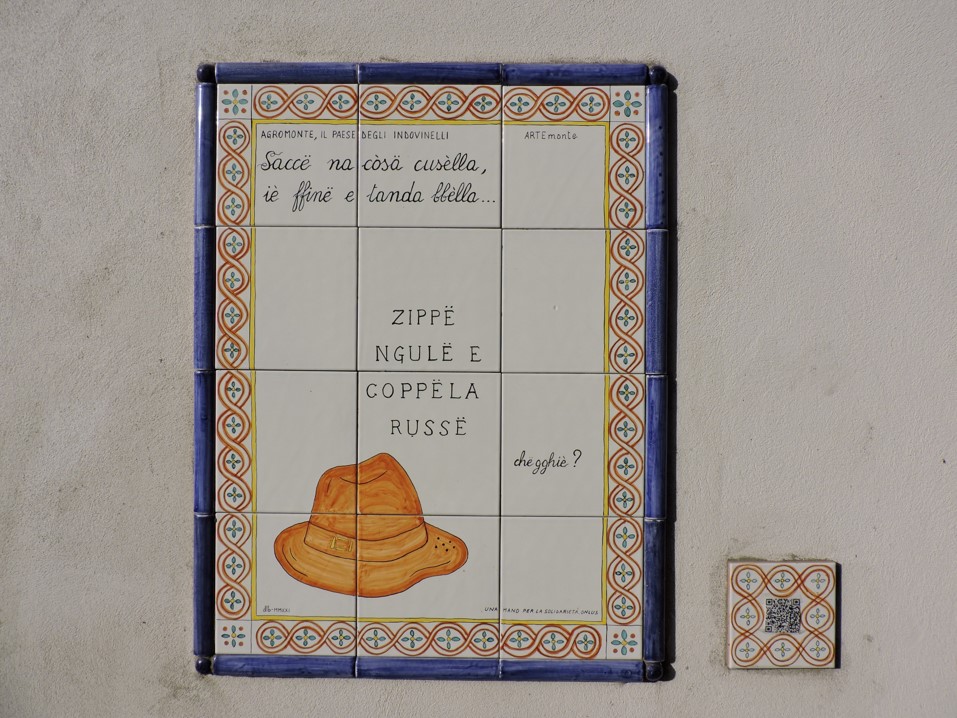 AGROMONTE, IL PAESE DEGLI INDOVINELLI
ARTEmonte
Saccë na còsä cusèlla,
iè ffinë e tanda bbèlla...
ZIPPË
NGULË E
COPPËLA
RUSSË
chë gghiè?
UNA MANO PER LA SOLIDARIETÀ ONLUS